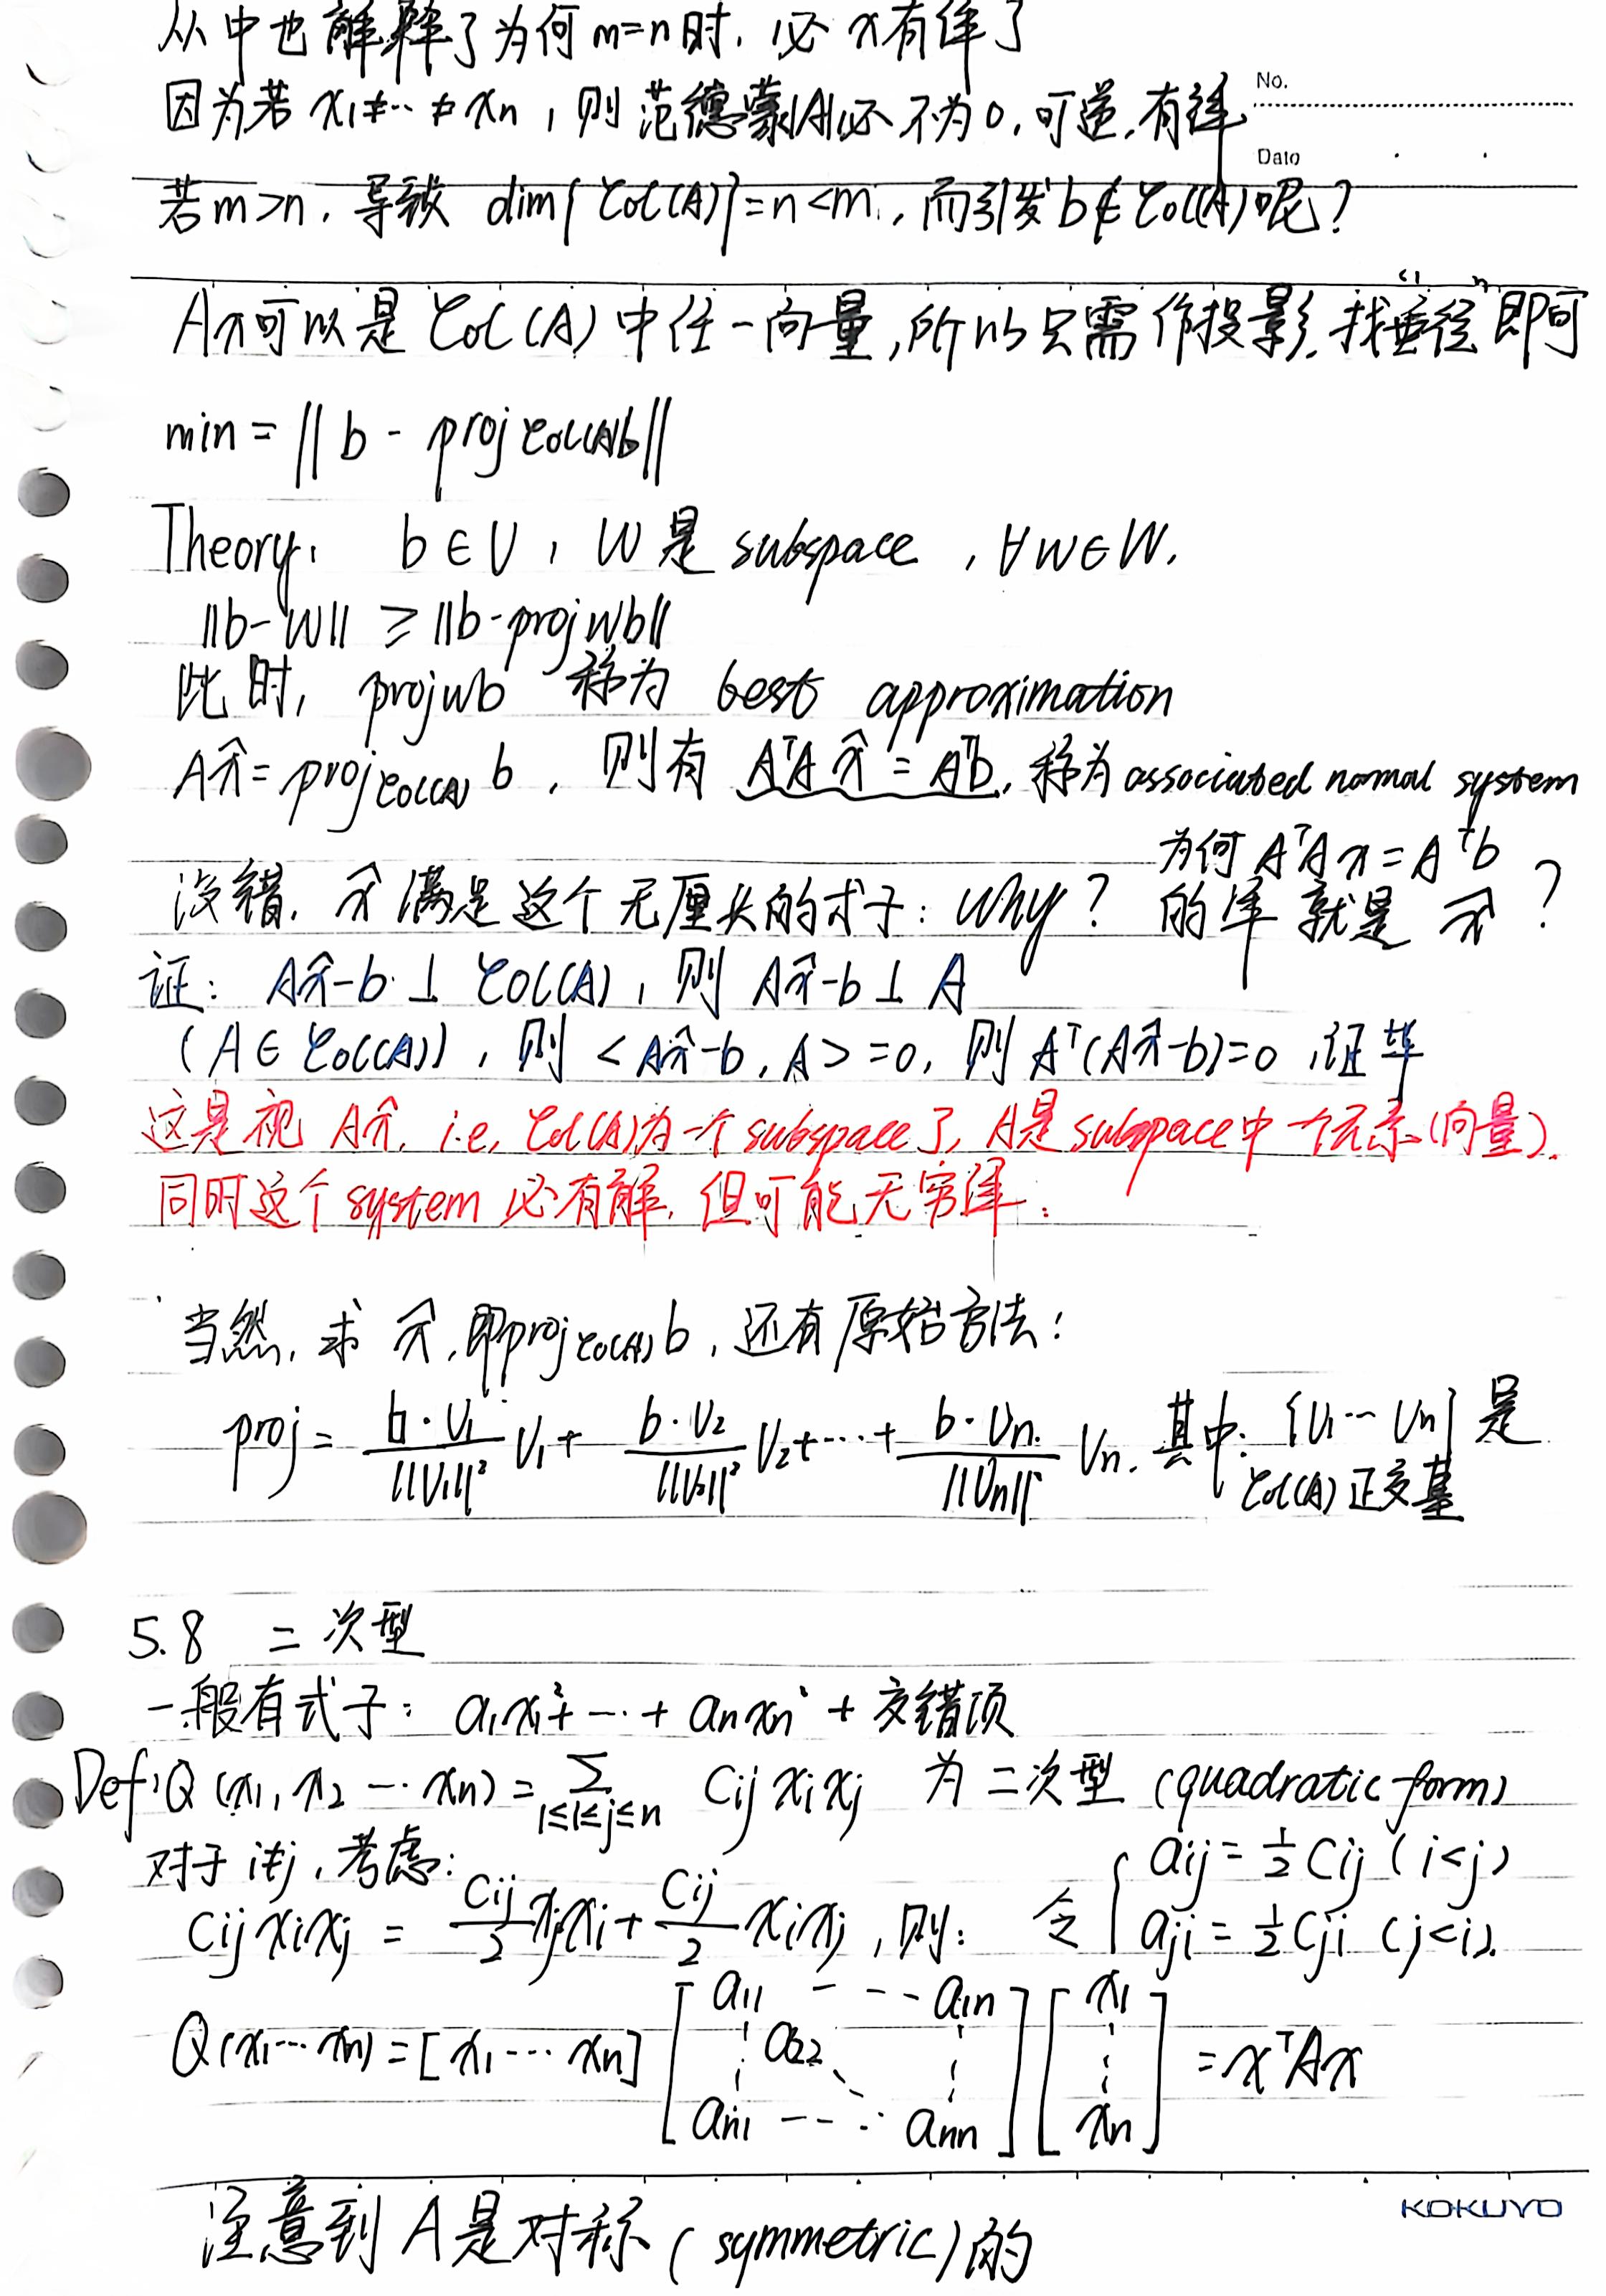 从中也解释了为何 m=n 时，必 x 有解了
No.
因为若 x₁≠…≠xn，则 范德蒙|A|必不为0，可逆，有解
Date
若 m>n，导致 dim{Col(A)}=n<m，而引发 b∉Col(A) 呢？
Ax可以是 Col(A) 中任一向量，所以只需作投影，找"垂径"即可
min = ‖b - proj Col(A) b‖
Theory: b∈V，W是 subspace，∀w∈W，
‖b-w‖ ≥ ‖b-proj w b‖
此时，proj w b 称为 best approximation
Ax̂ = proj Col(A) b，则有 AᵀAx̂ = Aᵀb，称为 associated normal system
没错，x̂ 满足这个无厘头的式子：why？ 为何 AᵀAx = Aᵀb
的解就是 x̂？
证：Ax̂-b ⊥ Col(A)，则 Ax̂-b ⊥ A
(A∈Col(A))，则 <Ax̂-b, A> =0，则 Aᵀ(Ax̂-b)=0，证毕
这是视 Ax̂，i.e, Col(A)为一个 subspace 了，A是 subspace中一个元素(向量)．
同时这个 system 必有解，但可能无穷解．
当然，求 x̂，即proj Col(A) b，还有原始方法：
proj = b·v₁/‖v₁‖² v₁ + b·v₂/‖v₂‖² v₂+…+ b·vn/‖vn‖² vn．其中：{v₁…vn} 是
Col(A) 正交基
5.8 二次型
一般有式子：a₁x₁²+…+ anxn² + 交错项
Def: Q(x₁, x₂ … xn) = Σ 1≤i≤j≤n Cij xi xj 为二次型 (quadratic form)
对于 i≠j，考虑：
Cij xi xj = Cij/2 xj xi + Cij/2 xi xj，则： 令 { aij = ½ Cij (i<j)
aji = ½ Cji (j<i)．
Q(x₁…xn) = [x₁ … xn] [a₁₁ … a₁n ⋮ a₂₂ ⋱ ⋮ an₁ … ann] [x₁ ⋮ xn] = xᵀAx
KOKUYO
注意到 A是对称 (symmetric)的